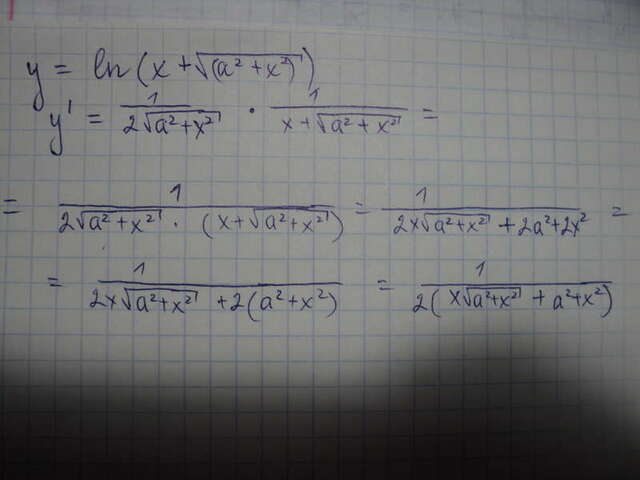 y = ln(x + √(a² + x²))
y' = 1/(2√(a² + x²)) · 1/(x + √(a² + x²)) =
= 1/(2√(a² + x²) · (x + √(a² + x²))) = 1/(2x√(a² + x²) + 2a² + 2x²) =
= 1/(2x√(a² + x²) + 2(a² + x²)) = 1/(2(x√(a² + x²) + a² + x²))